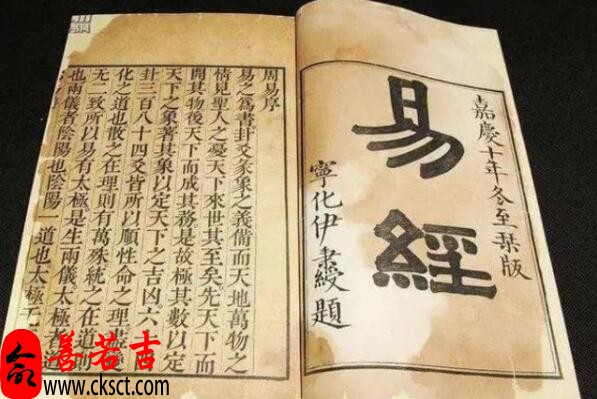 嘉慶十年冬至栞版
易經
寧化伊秉綬題
周易序
易之爲書卦爻彖象之義備而天地萬物之
情見聖人之憂天下來世其至矣先天下而
開其物後天下而成其務是故極其數以定
天下之象著其象以定天下之吉凶六
卦三百八十四爻皆所以順性命之理
化之道也散之在理則有萬殊統之在道則
无二致所以易有太極是生兩儀太極者道
也兩儀者陰陽也陰陽一道也太極无
善若吉
www.cksct.com